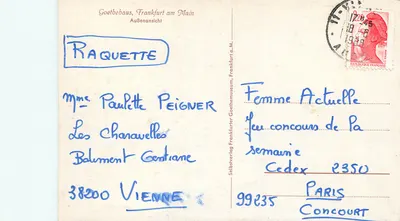 Goethehaus, Frankfurt am Main
Außenansicht
RAQUETTE
Mme Paulette PEIGNER
Les Charavelles
Batiment Gentiane
38200 VIENNE
Selbstverlag Frankfurter Goethemuseum, Frankfurt a. M.
Femme Actuelle
Jeu concours de la
semaine
Cedex 2350
PARIS
99235 CONCOURT